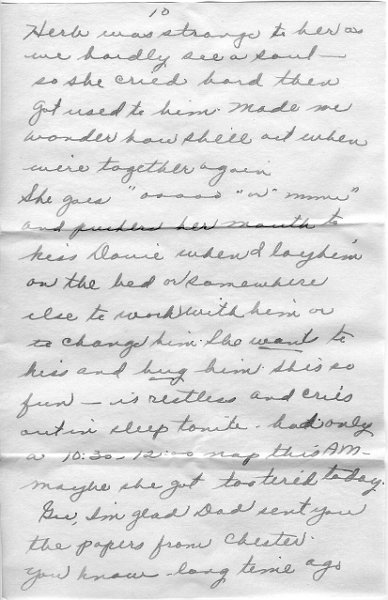 10
Herb was strange to her as
we hardly see a soul -
so she cried hard then
got used to him. Made me
wonder how she'll act when
we're together again
She goes "ooooo" or "mmm"
and pushes her mouth to
kiss Davie when I lay him
on the bed or somewhere
else to work with him or
to change him. She wants to
kiss and hug him. She's so
fun - is restless and cries
out in sleep tonite - had only
a 10:30 - 12:00 nap this AM -
maybe she got too tired today.
Gee, I'm glad Dad sent you
the papers from Chester.
You know - long time ago